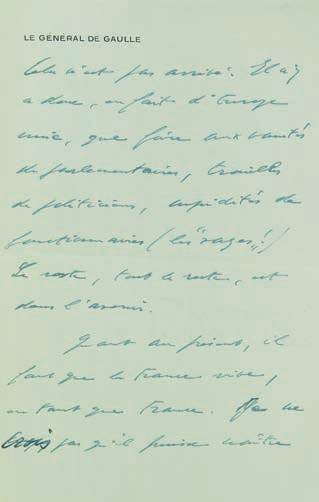 LE GÉNÉRAL DE GAULLE
Cela n'est pas arrivé. Il n'y
a donc, en fait d'Europe
unie, que foire aux vanités
de parlementaires, 
de politiciens, cupidités de
fonctionnaires (les "sages"!)
Le reste, tout le reste, est
dans l'avenir.
Quant au présent, il
faut que la France vive,
en tant que France. Je ne
crois pas qu'il puisse naître